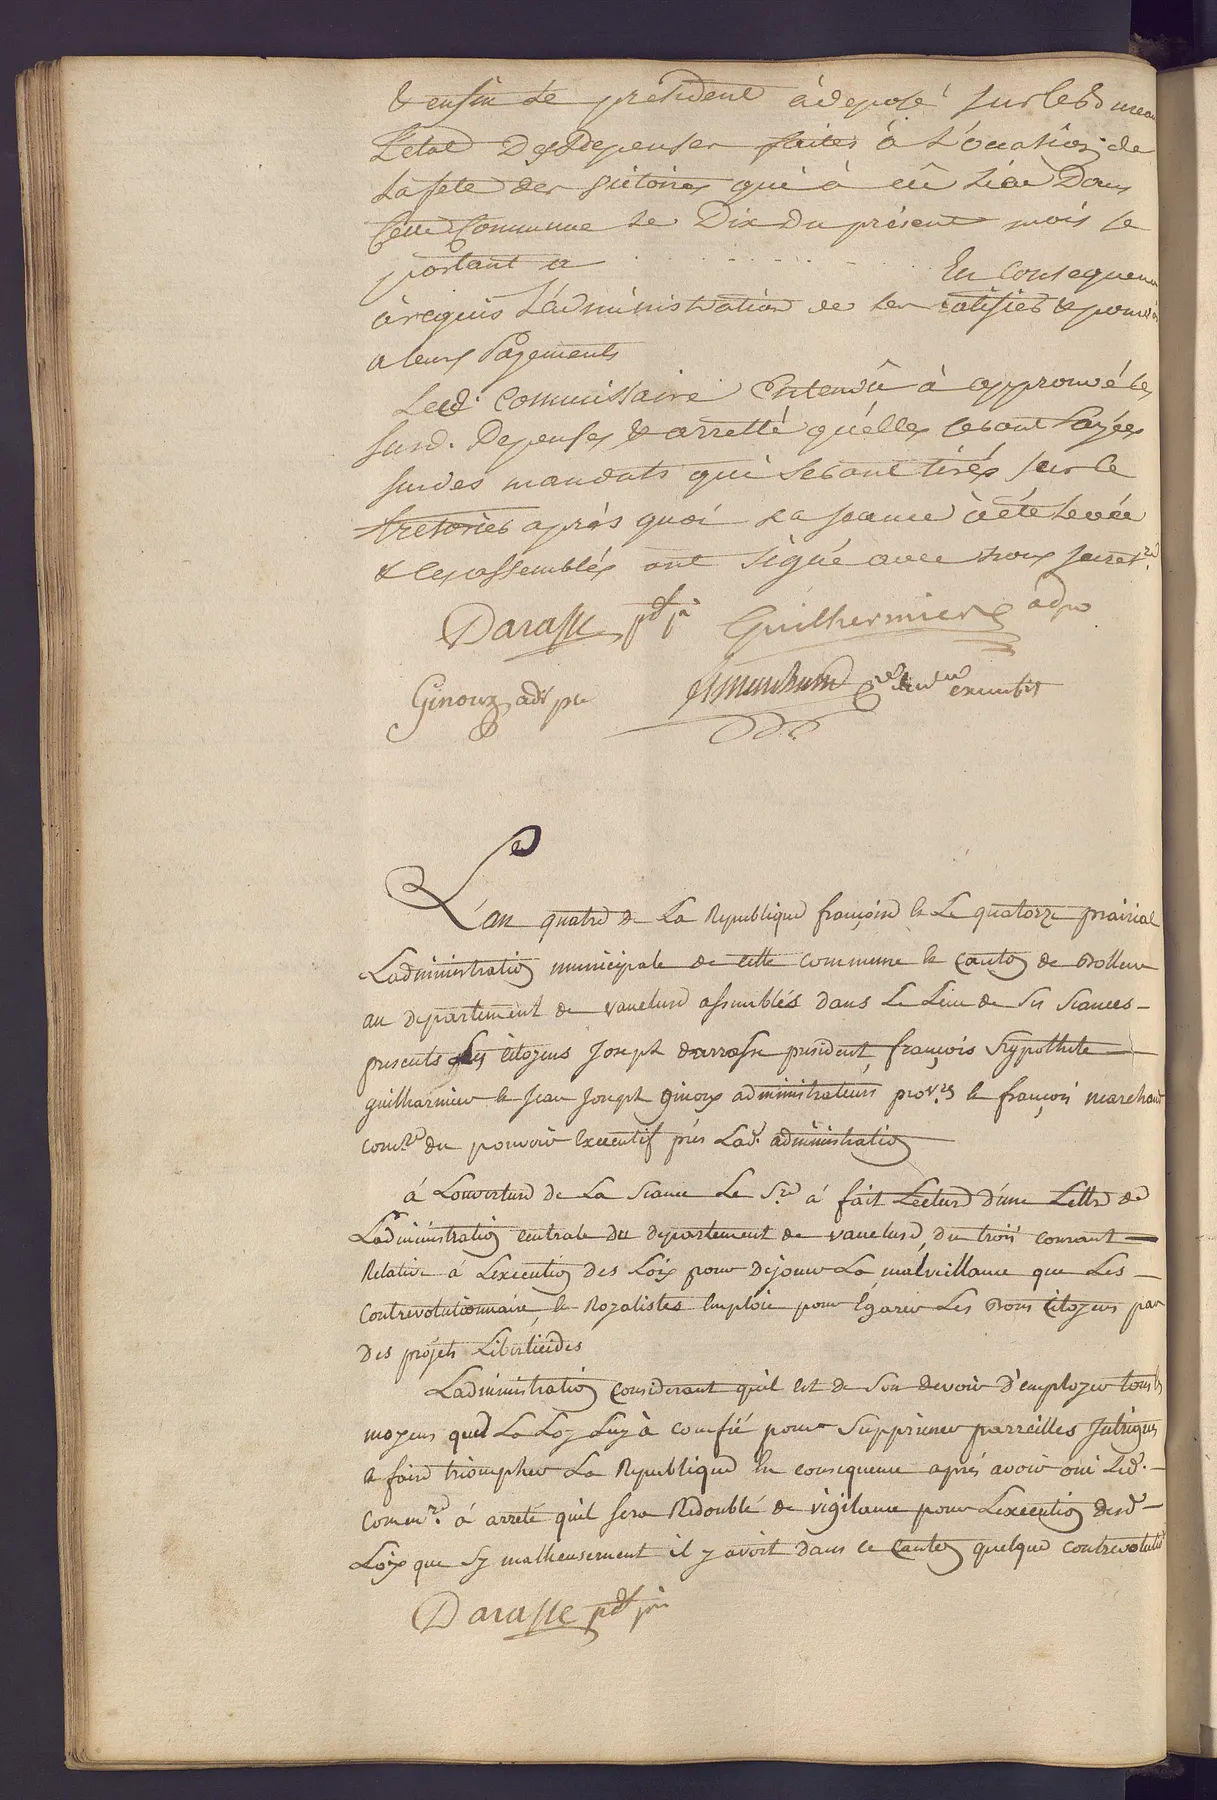 & enfin le président à deposé sur le Bureau
L'etat Des Depenses faites à L'occasion de
La fete des Victoires qui à eû Lieu Dans
Cette Commune Le Dix Du présent mois se
portant a . . . . . . . . . En Consequence
à requis L'administration de les ratifier & pourvoir
a leurs Payements
Led. Commissaire Entendû à approuvé les
susd. Depenses & arretté qu'elles seront Payées
sur des mandats qui seront tirés sur le
tresorier après quoi La seance à été Levée
& les assemblés ont signé avec nous secret.re
Darasse pdt pr Guilhermier adpo
Ginoux adt pre
L'an quatre de La Republique françoise & Le quatorze prairial
Ladministration municipale de cette commune & Canton de Bollene
au departement de vaucluse assemblés dans Le Lieu de Ses Seances –
presents Les Citoyens Joseph darrasse president, françois hypothite –
guilharmier & Jean Joseph ginoux administrateurs prov.res & françois marchand
com.re du pouvoir Executif près Lad. administration
á Louverture de La Seance Le S.re á fait Lecture d'une Lettre de
L'administration Centrale du departement de vaucluse, du trois courant –
Relative á Lexecution des Loix pour Dejouer La malveillance que Les –
Contrevolutionnaire, & Royalistes Emploie pour Egarer Les Bons Citoyens par
Des projets Liberticides
Ladministration Considerant quil Est de Son devoir d'employer tous les
moyens que La Loy Luy à confié pour Supprimer parreilles Intrigues
& faire triompher La Republique En consequence après avoir oui Led. –
Comm.re á arreté quil sera Redoublé de vigilance pour Lexecution desd –
Loix que Sy malheusement il y avoit dans ce Canton quelque contrevolutio
Darasse pdt pr